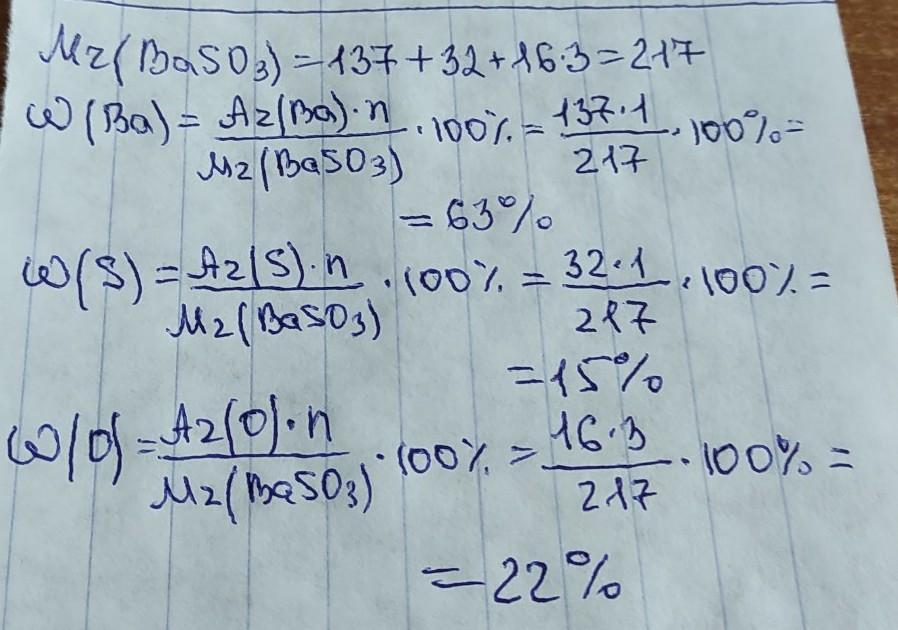 Mr(BaSO₃) = 137 + 32 + 16·3 = 217
ω(Ba) = Ar(Ba)·n / Mr(BaSO₃) · 100% = 137·1 / 217 · 100% =
= 63%
ω(S) = Ar(S)·n / Mr(BaSO₃) · 100% = 32·1 / 217 · 100% =
= 15%
ω(O) = Ar(O)·n / Mr(BaSO₃) · 100% = 16·3 / 217 · 100% =
= 22%